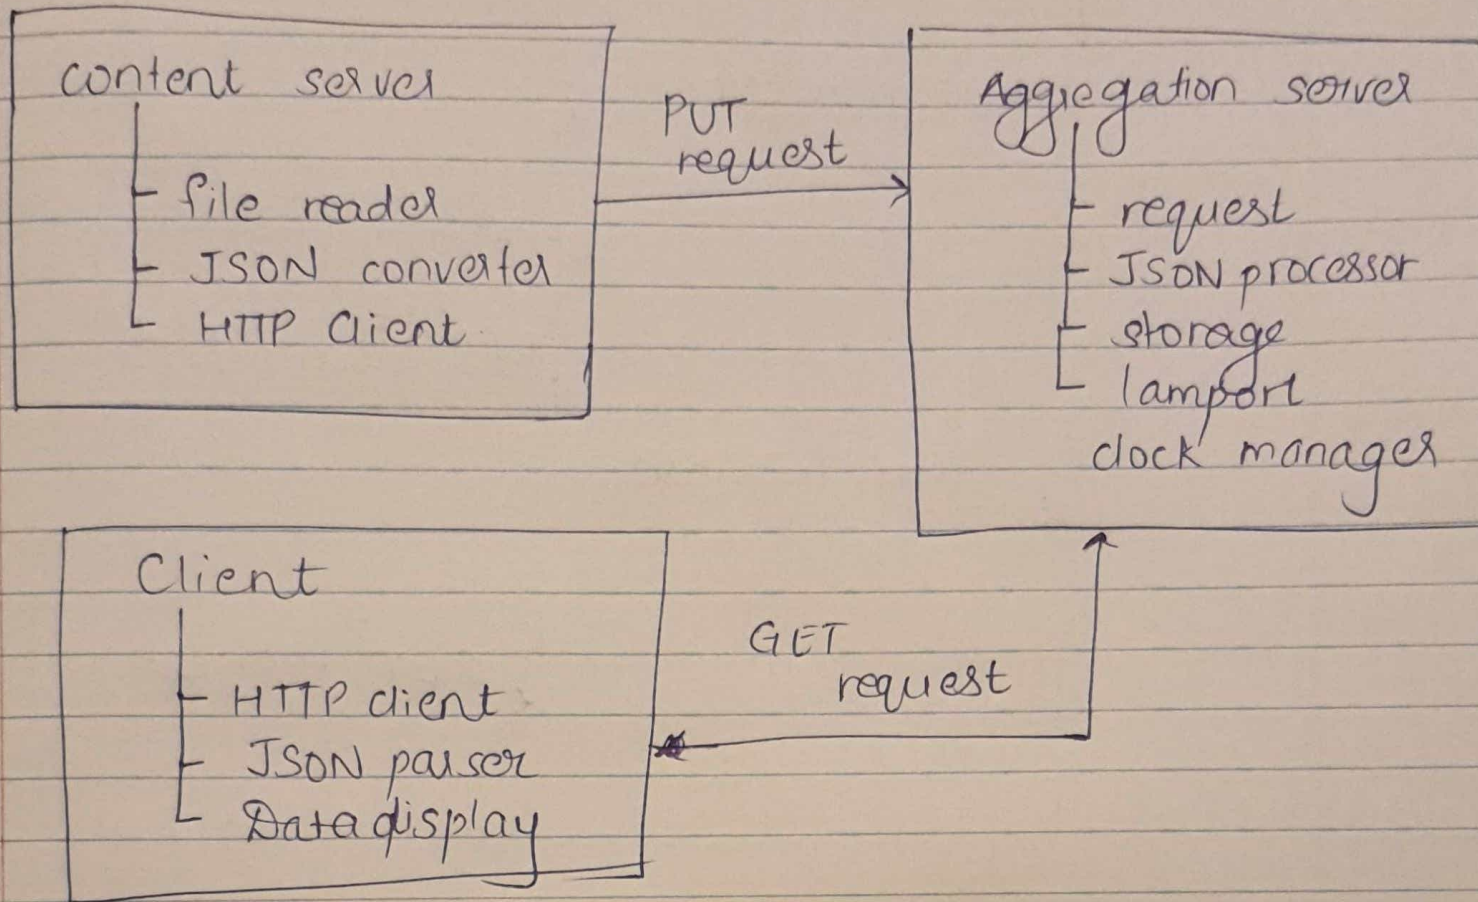 content server
file reader
JSON converter
HTTP Client
PUT
request
Aggregation server
request
JSON processor
storage
lamport
clock manager
Client
HTTP client
JSON parser
Data display
GET
request